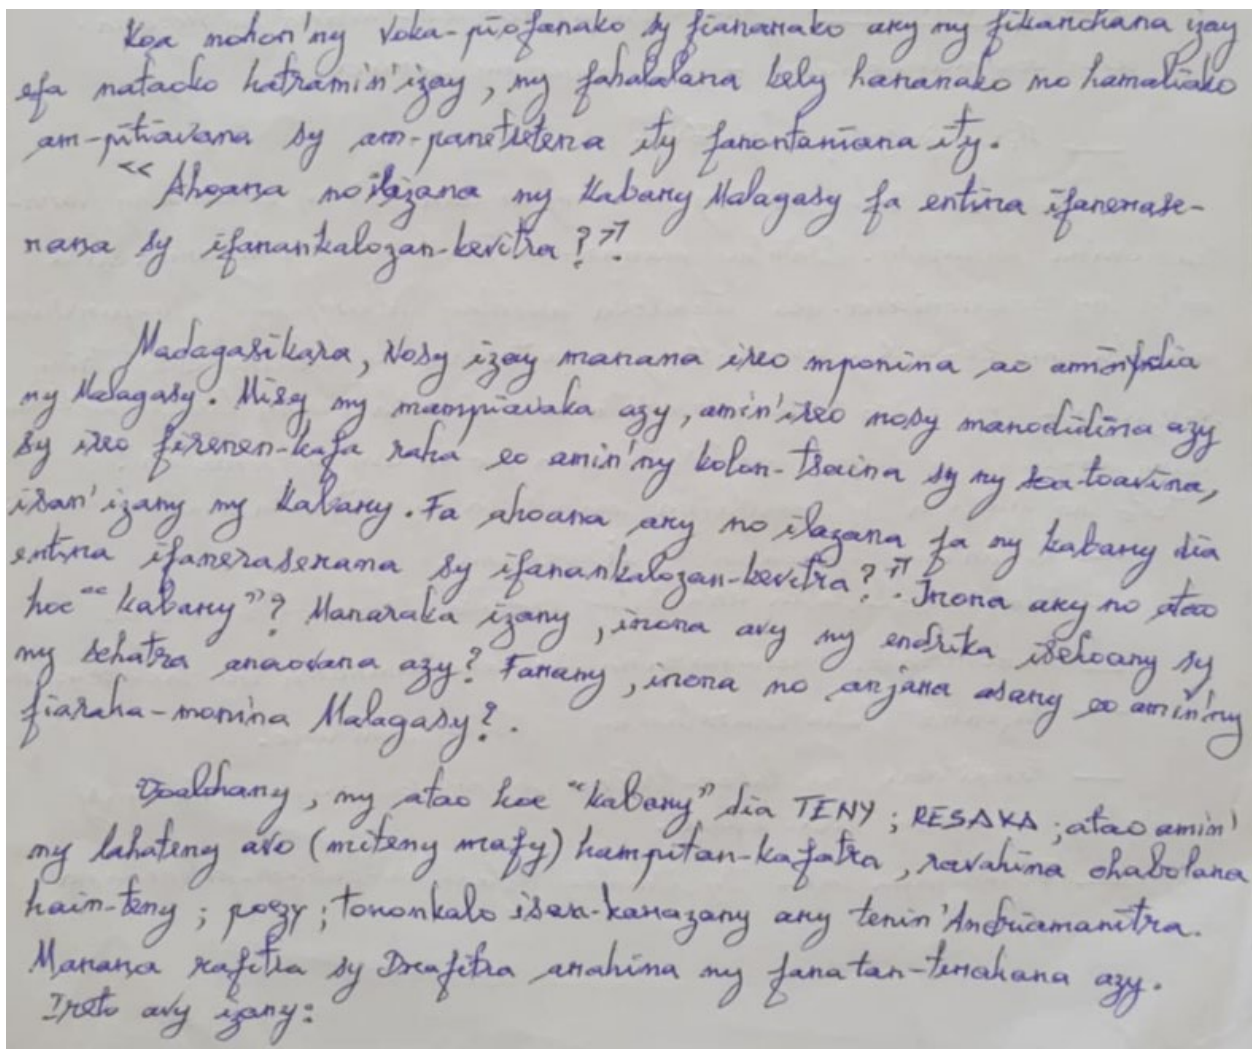 Koa nohon'ny voka-piofanako sy fianarako ary ny fikarohana izay
efa nataoko hatramin'izay, ny fahalalana kely hananako no hamaliako
am-pitiavana sy am-panetretena ity fanontaniana ity.
<< Ahoana no ilazana ny Kabary Malagasy fa entina ifanerase-
rana sy ifanankalozan-kevitra ? >>.
Madagasikara, Nosy izay manana ireo mponina ao amin'ny dia
ny Malagasy. Misy ny mampiavaka azy, amin'ireo nosy manodidina azy
sy ireo firenen-kafa raha eo amin'ny kolon-tsaina sy ny soa-toavina,
isan'izany ny Kabary. Fa ahoana ary no ilazana fa ny kabary dia
entina ifaneraserana sy ifanankalozan-kevitra ? >>. Inona ary no atao
hoe "kabary" ? Manaraka izany, inona avy ny endrika isehoany sy
ny sehatra anaovana azy ? Farany, inona no anjara asany eo amin'ny
fiaraha-monina Malagasy ?.
Voalohany, ny atao hoe "kabary" dia TENY ; RESAKA ; atao amin'
ny lahateny avo (miteny mafy) hampitan-kafatra, ravahina ohabolana
hain-teny ; poezy ; tononkalo isan-karazany ary tenin'Andriamanitra.
Manana rafitra sy Drafitra arahina ny fanatan-terahana azy.
Ireto avy izany :